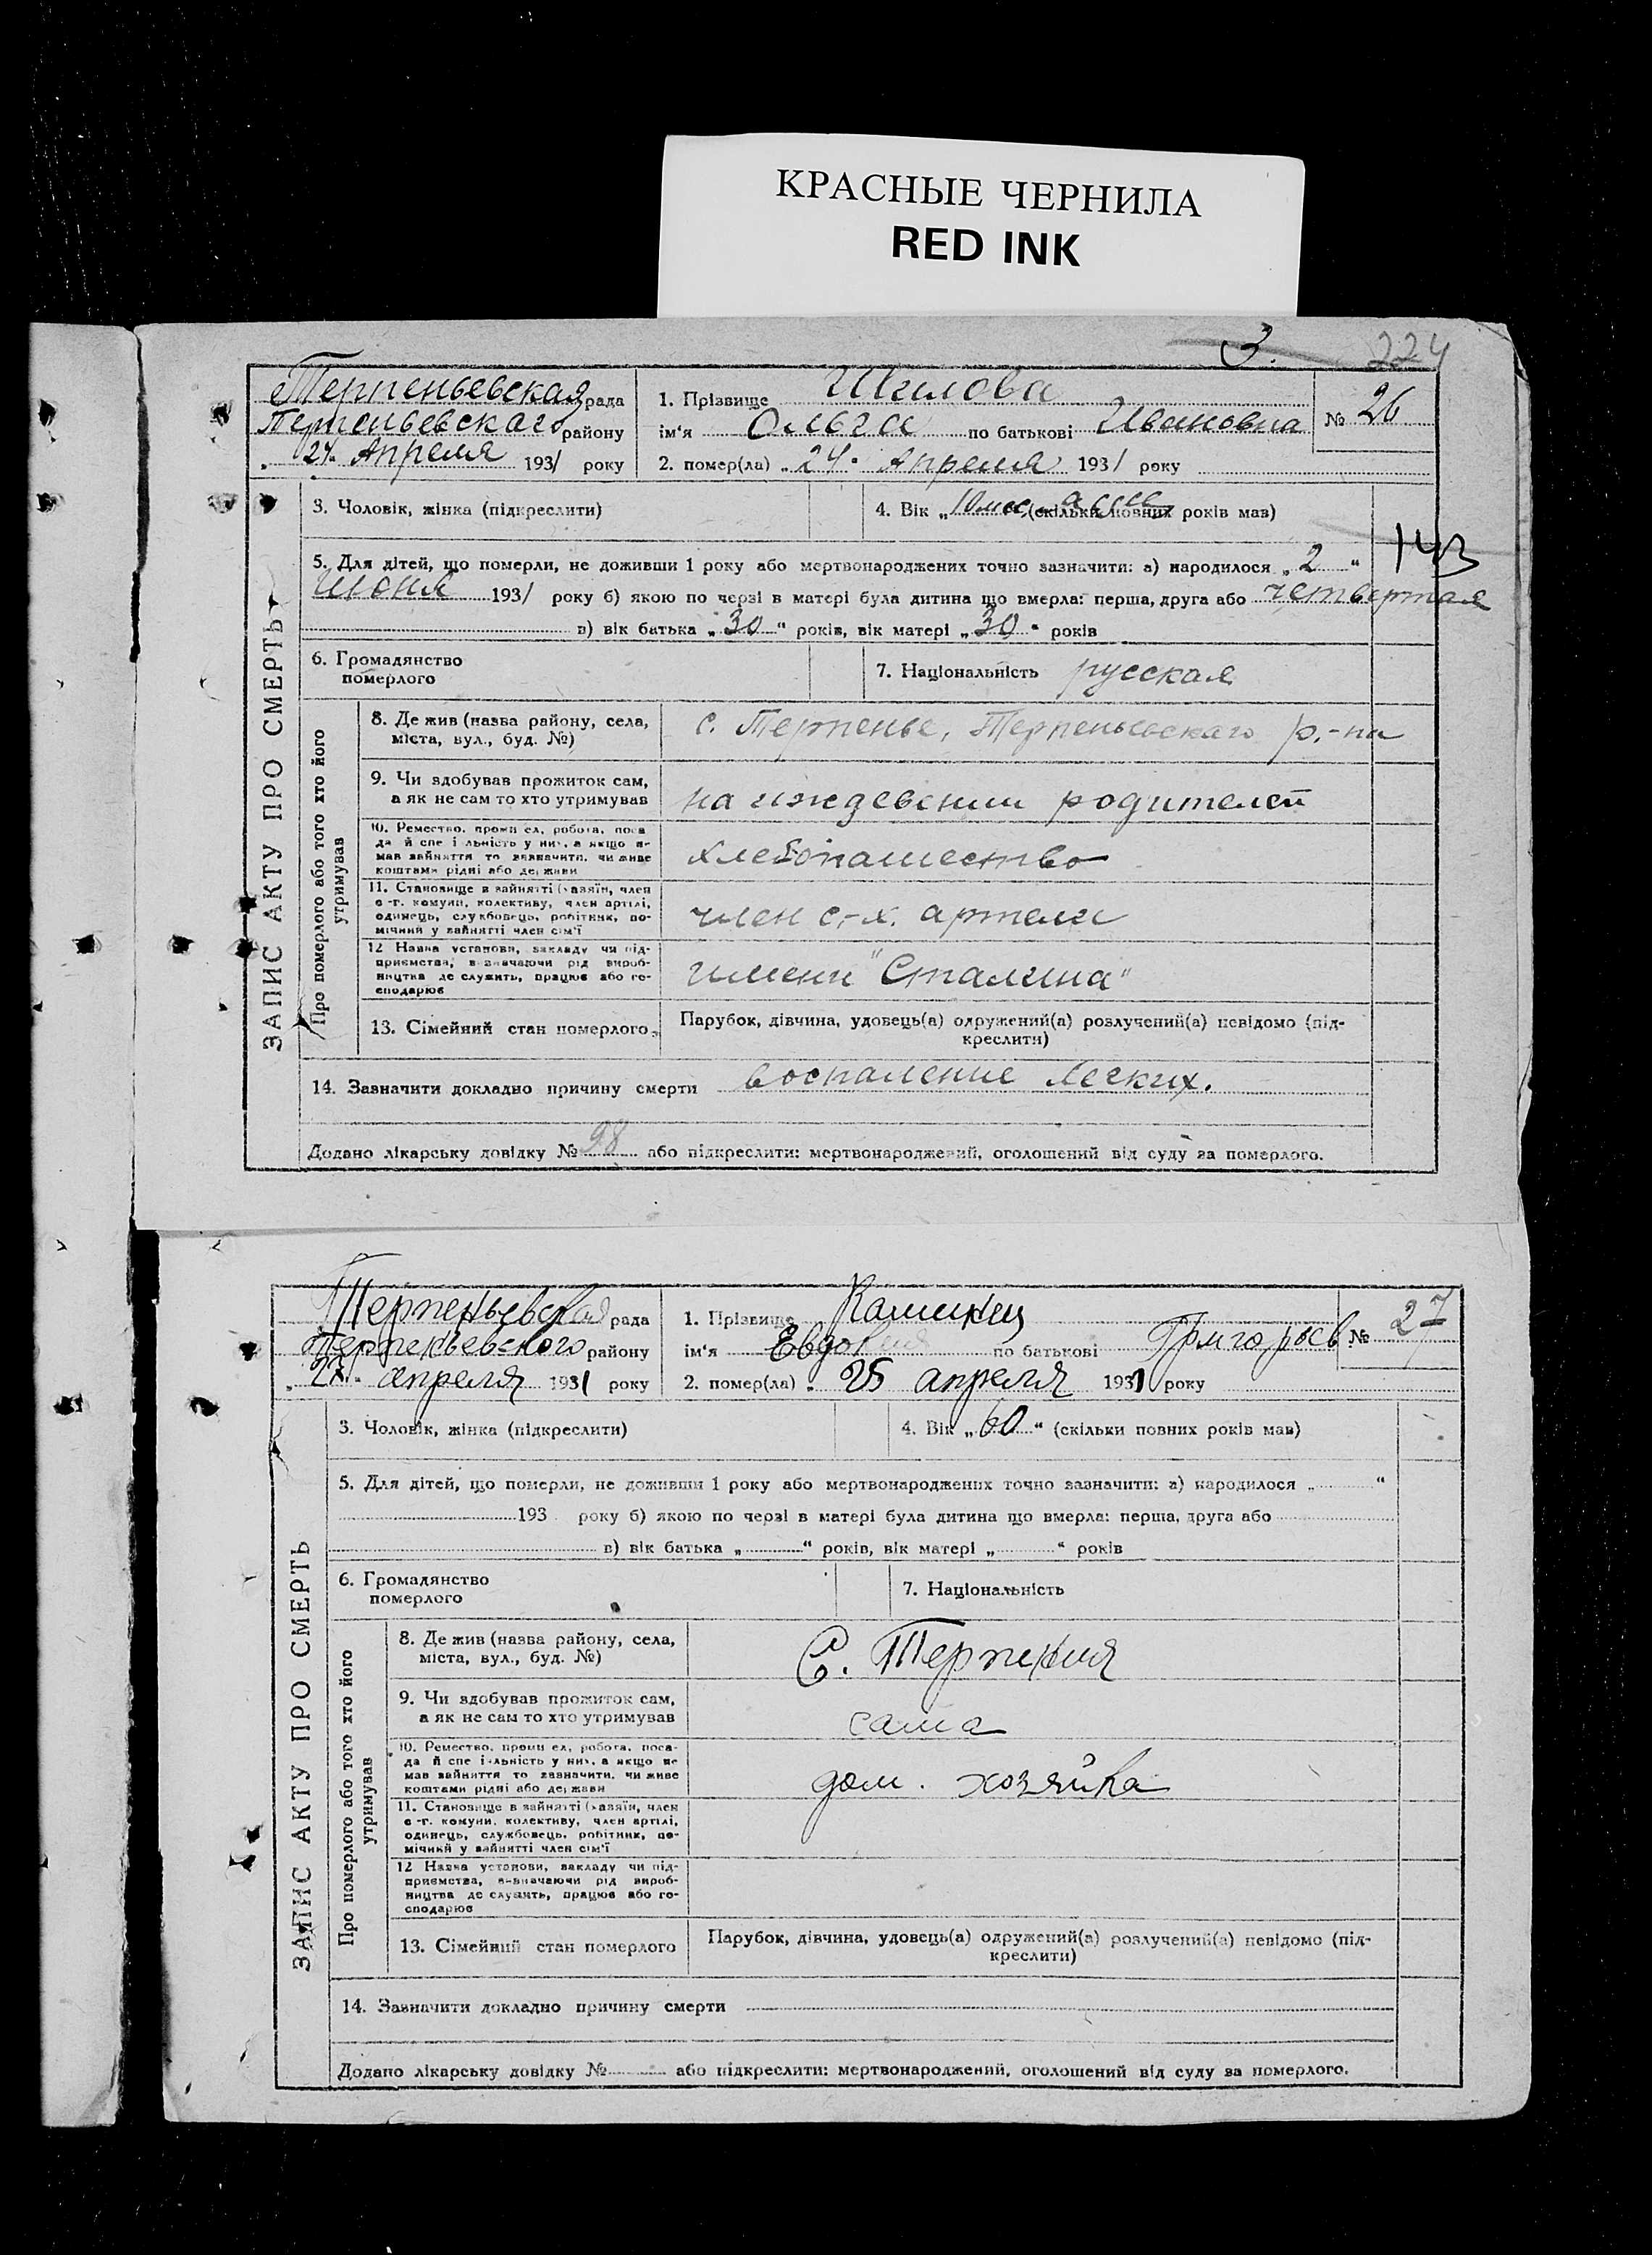 КРАСНЫЕ ЧЕРНИЛА
RED INK
3.
224
Терпеньевская рада
Терпеньевскаго району
„24“ Апреля 1931 року
1. Прізвище Шилова
ім‘я Ольга по батькові Ивановна
№ 26
2. помер(ла) „24“ Апреля 1931 року
ЗАПИС АКТУ ПРО СМЕРТЬ
3. Чоловік, жінка (підкреслити)
4. Вік „10 мес. (скільки повних років мав)
143
5. Для дітей, що померли, не доживши 1 року або мертвонароджених точно зазначити: а) народилося „2“
июня 193/ року б) якою по черзі в матері була дитина що вмерла: перша, друга або четвертая
в) вік батька „30“ років, вік матері „30“ років
6. Громадянство
померлого
7. Національність русская
Про померлого або того хто його
утримував
8. Де жив (назва району, села,
міста, вул., буд. №)
с. Терпенье, Терпеньевскаго р.-на
9. Чи здобував прожиток сам,
а як не сам то хто утримував
на иждевении родителей
10. Ремество, промисел, робота, поса-
да й спеціяльність у них, а якщо не
мав зайняття то зазначити, чи живе
коштами рідні або держави
хлебопашество
11. Становище в зайнятті (хазяїн, член
с-г. комуни, колективу, член артілі,
одинець, службовець, робітник, по-
мічний у зайнятті член сім‘ї
член с.-х. артели
12 Назва установи, закладу чи під-
приємства, визначаючи рід вироб-
ництва де служить, працює або го-
сподарює
имени "Сталина"
13. Сімейний стан померлого
Парубок, дівчина, удовець(а) одружений(а) розлучений(а) невідомо (під-
креслити)
14. Зазначити докладно причину смерти воспаление легких.
Додано лікарську довідку № 98 або підкреслити: мертвонароджений, оголошений від суду за померлого.
Терпеньевская рада
Терпеньевского району
апреля 1931 року
1. Прізвище Калинец
ім‘я Евдокия по батькові Григорьев
№ 27
2. помер(ла) „25 апреля 1931 року
ЗАПИС АКТУ ПРО СМЕРТЬ
3. Чоловік, жінка (підкреслити)
4. Вік „60“ (скільки повних років мав)
5. Для дітей, що померли, не доживши 1 року або мертвонароджених точно зазначити: а) народилося „ “
193 року б) якою по черзі в матері була дитина що вмерла: перша, друга або
в) вік батька „ “ років, вік матері „ “ років
6. Громадянство
померлого
7. Національність
Про померлого або того хто його
утримував
8. Де жив (назва району, села,
міста, вул., буд. №)
С. Терпения
9. Чи здобував прожиток сам,
а як не сам то хто утримував
сама
10. Ремество, промисел, робота, поса-
да й спеціяльність у них, а якщо не
мав зайняття то зазначити, чи живе
коштами рідні або держави
дом. хозяйка
11. Становище в зайнятті (хазяїн, член
с-г. комуни, колективу, член артілі,
одинець, службовець, робітник, по-
мічний у зайнятті член сім‘ї
12 Назва установи, закладу чи під-
приємства, визначаючи рід вироб-
ництва де служить, працює або го-
сподарює
13. Сімейний стан померлого
Парубок, дівчина, удовець(а) одружений(а) розлучений(а) невідомо (під-
креслити)
14. Зазначити докладно причину смерти
Додано лікарську довідку № або підкреслити: мертвонароджений, оголошений від суду за померлого.